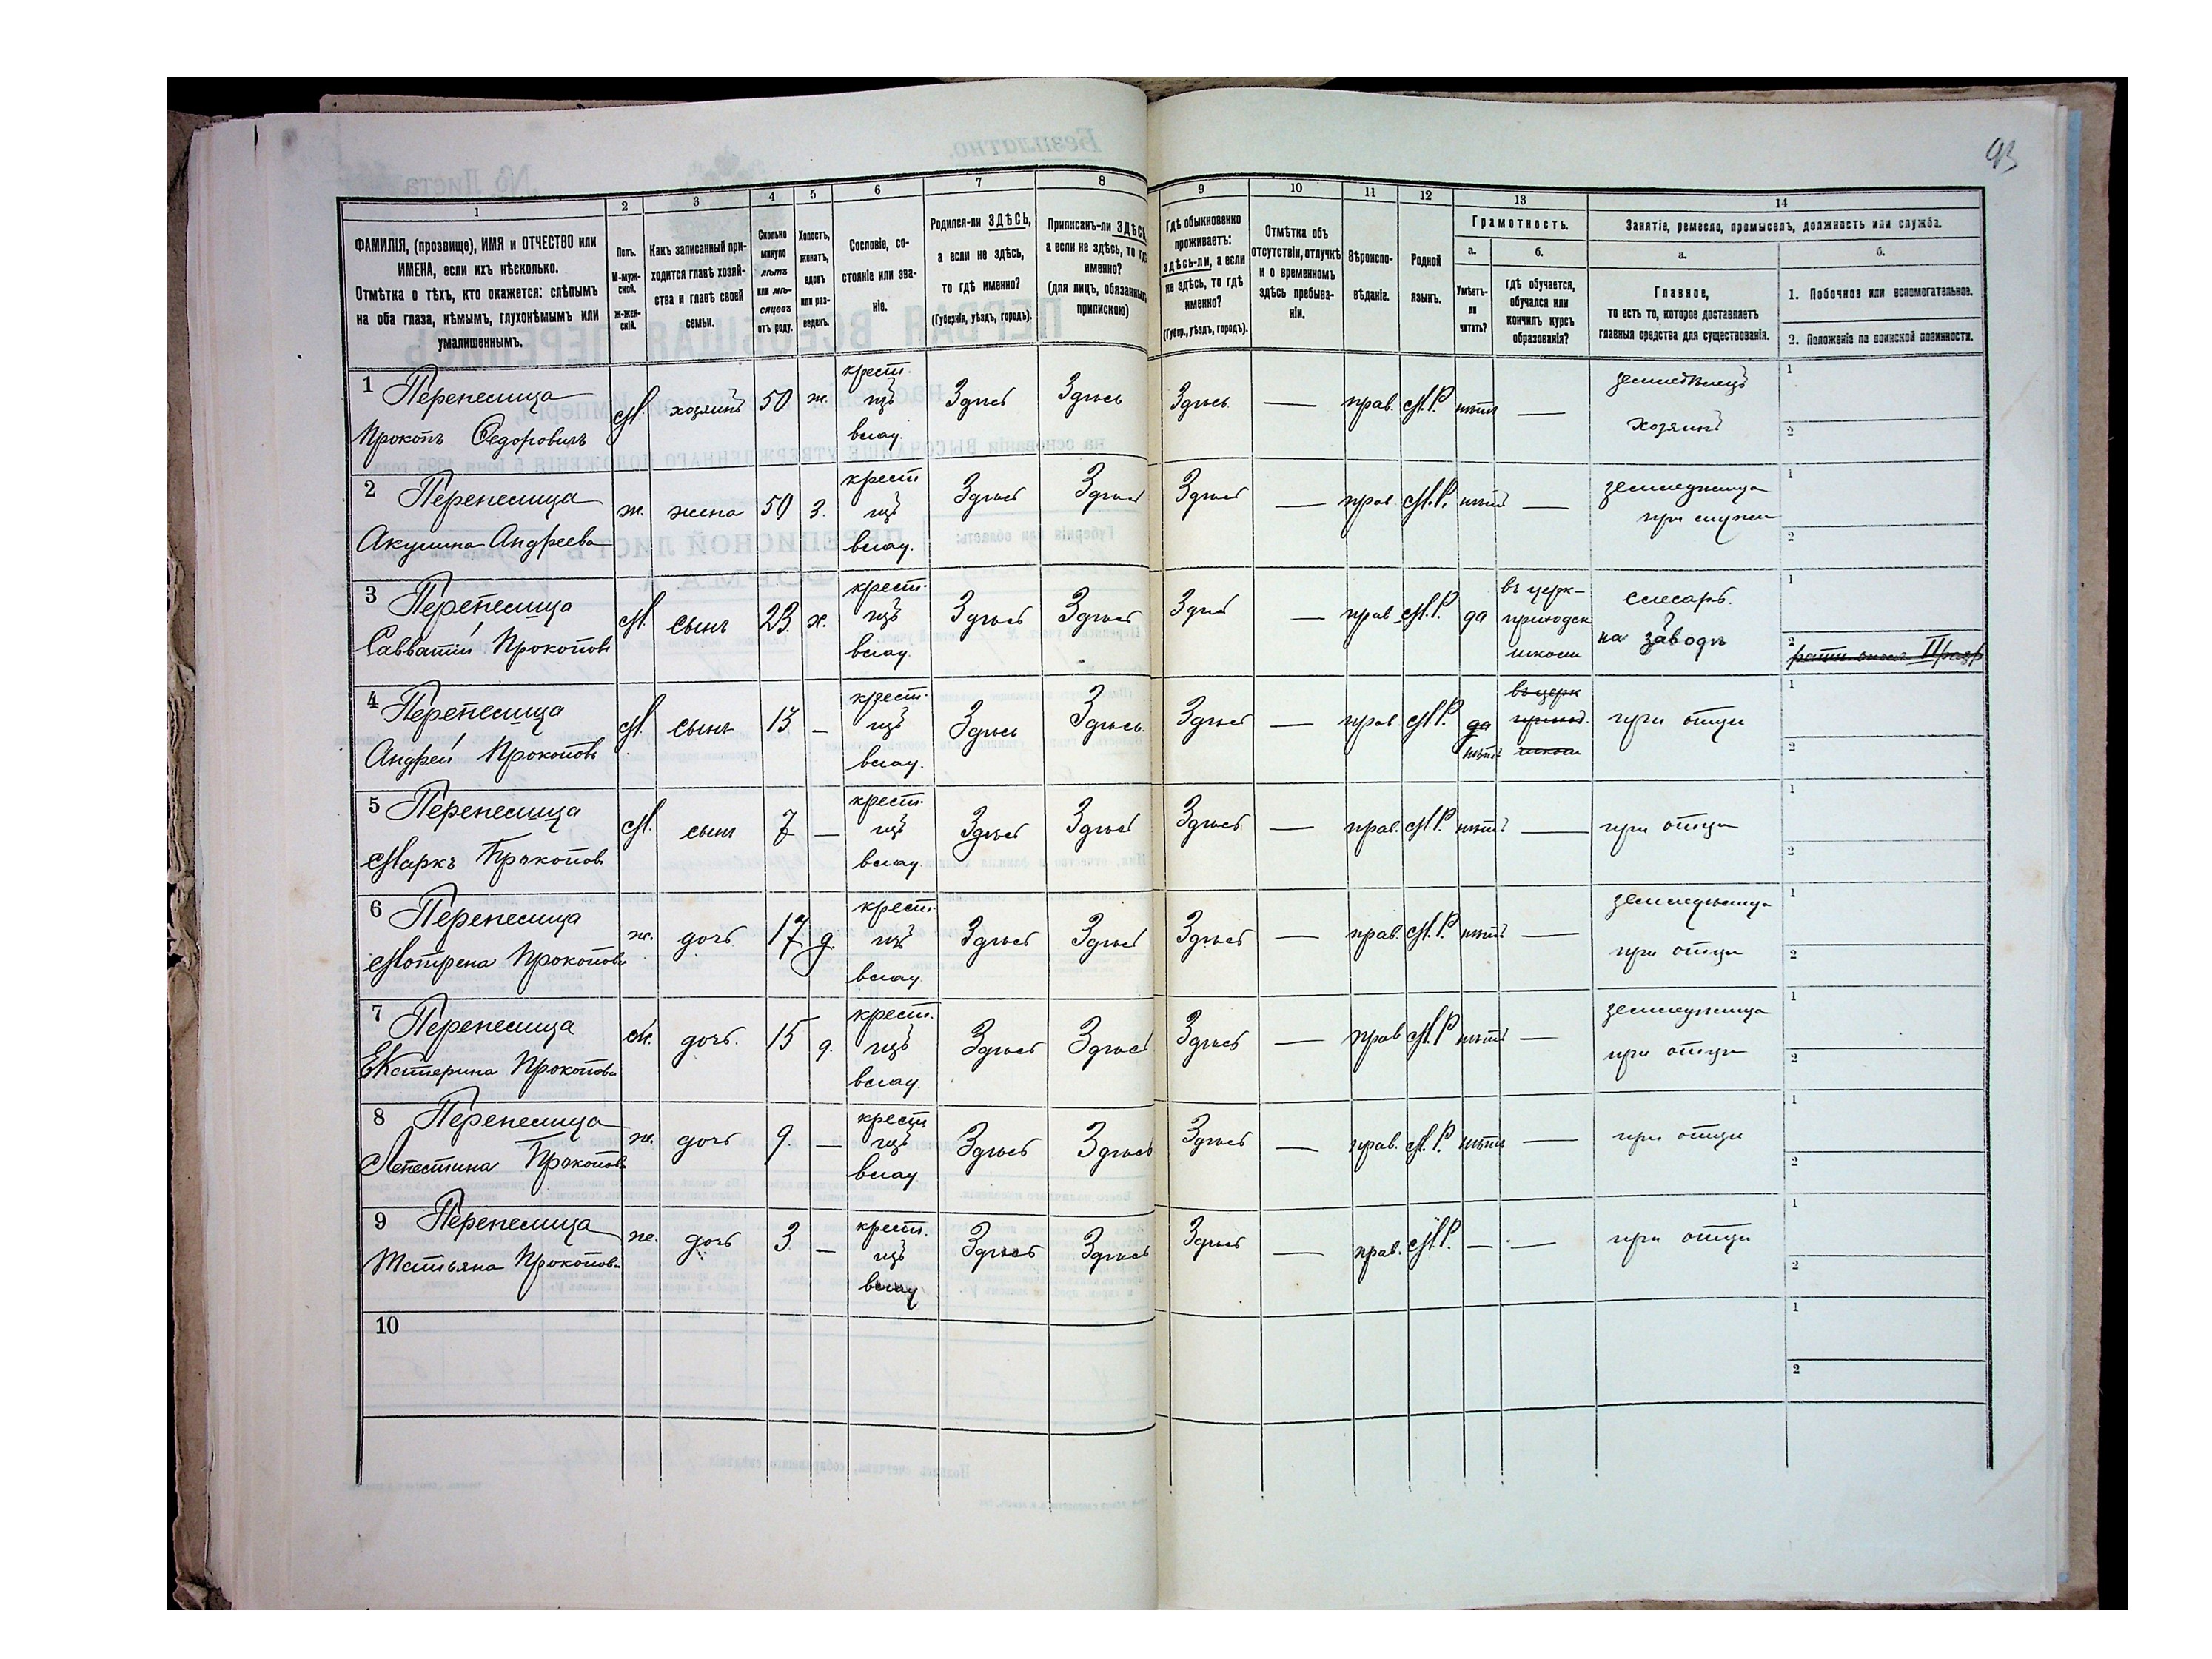 93
1 2 3 4 5 6 7 8 9 10 11 12 13 14
ФАМИЛІЯ, (прозвище), ИМЯ и ОТЧЕСТВО или
ИМЕНА, если ихъ нѣсколько.
Отмѣтка о тѣхъ, кто окажется: слѣпымъ
на оба глаза, нѣмымъ, глухонѣмымъ или
умалишеннымъ.
Полъ.
М-муж-
ской.
Ж-жен-
скій.
Какъ записанный при-
ходится главѣ хозяй-
ства и главѣ своей
семьи.
Сколько
минуло
лѣтъ
или мѣ-
сяцевъ
отъ роду.
Холостъ,
женатъ,
вдовъ
или раз-
веденъ.
Сословіе, со-
стояніе или зва-
ніе.
Родился-ли ЗДѢСЬ,
а если не здѣсь,
то гдѣ именно?
(Губернія, уѣздъ, городъ).
Приписанъ-ли ЗДѢСЬ,
а если не здѣсь, то гдѣ
именно?
(для лицъ, обязанныхъ
припискою)
Гдѣ обыкновенно
проживаетъ:
здѣсь-ли, а если
не здѣсь, то гдѣ
именно?
(Губер., уѣздъ, городъ).
Отмѣтка объ
отсутствіи, отлучкѣ
и о временномъ
здѣсь пребыва-
ніи.
Вѣроиспо-
вѣданіе.
Родной
языкъ.
Грамотность.
а.
Умѣетъ-
ли
читать?
б.
гдѣ обучается,
обучался или
кончилъ курсъ
образованія?
Занятіе, ремесло, промыселъ, должность или служба.
а.
Главное,
то есть то, которое доставляетъ
главныя средства для существованія.
б.
1. Побочное или вспомогательное.
2. Положеніе по воинской повинности.
1 Перепелица
Прокопъ Федоровичъ
М. хозяинъ 50 ж. крест. изъ влад. Здѣсь Здѣсь Здѣсь — прав. М.Р. нѣтъ —
земледѣлецъ
хозяинъ
1
2
2 Перепелица
Акулина Андреева
ж. жена 50 з. крест изъ влад. Здѣсь Здѣсь Здѣсь — прав. М.Р. нѣтъ —
1
2
3 Перепелица
Савватій Прокоповъ
М. сынъ 23. х. крест. изъ влад. Здѣсь Здѣсь Здѣсь — прав. М.Р. да
въ церк-
приходск
школѣ
слесарь.
на заводѣ
1
2
4 Перепелица
Андрей Прокоповъ
М. сынъ 13 — крест. изъ влад. Здѣсь Здѣсь. Здѣсь — прав. М.Р. да
нѣтъ
въ церк
приход.
школѣ
при отцѣ
1
2
5 Перепелица
Маркъ Прокоповъ
М. сынъ 7 — крест. изъ влад. Здѣсь Здѣсь Здѣсь — прав. М.Р. нѣтъ — при отцѣ
1
2
6 Перепелица
Мотрена Прокопова
ж. дочь 17 д. крест. изъ влад. Здѣсь Здѣсь Здѣсь — прав. М.Р. нѣтъ —
при отцѣ
1
2
7 Перепелица
Екатерина Прокопова
ж. дочь. 15 д. крест. изъ влад. Здѣсь Здѣсь Здѣсь — прав М.Р нѣтъ —
при отцѣ
1
2
8 Перепелица
Прокопова
ж. дочь 9. — крест изъ влад Здѣсь Здѣсь Здѣсь — прав. М.Р. нѣтъ — при отцѣ
1
2
9 Перепелица
Татьяна Прокопова
ж. дочь 3 — крест. изъ влад Здѣсь Здѣсь Здѣсь — прав. М.Р. — — при отцѣ
1
2
10
1
2